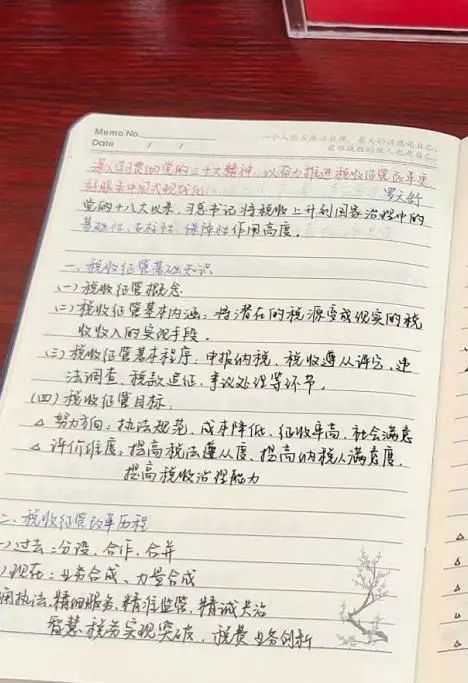 Memo No.
Date / /
一个人能否廉洁自律，最大的诱惑是自己，
最难战胜的敌人也是自己。
深入学习贯彻党的二十大精神，以奋力推进税收征管改革更
好服务中国式现代化
罗天舒
党的十八大以来，习总书记将税收上升到国家治理中的
基础性、支柱性、保障性作用高度。
一、税收征管基础知识
(一)税收征管概念
(二)税收征管基本内涵：将潜在的税源变成现实的税
收收入的实现手段。
(三)税收征管基本程序：申报纳税、税收遵从评估、违
法调查、税款追征、争议处理等环节。
(四)税收征管目标：
△ 努力方向：执法规范、成本降低、征收率高、社会满意
△ 评价维度：提高税法遵从度、提高纳税人满意度、
提高税收治理能力
二、税收征管改革历程
)过去：分设、合作、合并
)现在：业务合成、力量合成
执法、精细服务、精准监管、精诚共治
智慧税务实现突破，税费业务创新